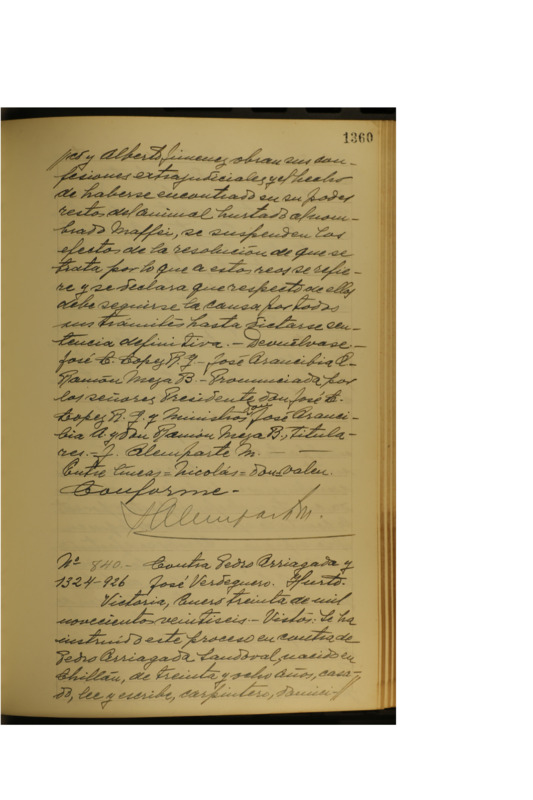 1360
pez y Alberto Jimenez obran sus con-
fesiones extrajudiciales y el hecho
de haberse encontrado en su poder
restos del animal hurtado al nom-
brado Maffei, se suspenden los
efectos de la resolución de que se
trata por lo que a estos reos se refie-
re y se declara que respecto de ellos
debe seguirse la causa por todos
sus trámites hasta dictarse sen-
tencia definitiva. - Devuélvase -
José C. Lopez R. - José Arancibia A. -
Ramón Meza B. - Pronunciada por
los señores Presidente don José C.
Lopez R. y Ministros don José Aranci-
bia A. y don Ramón Meza B., titula-
res. - J. Alemparte M. -
Entre líneas = Nicolás = don valen.
Conforme -
J Alemparte M.
Nº 840. - Contra Pedro Arriagada y
1324-926 José Verdeguero. Hurto.
Victoria, Enero treinta de mil
novecientos veintiseis - Vistos: Se ha
instruido este proceso en contra de
Pedro Arriagada Sandoval, nacido en
Chillán, de treinta y ocho años, casa-
do, lee y escribe, carpintero, domici-